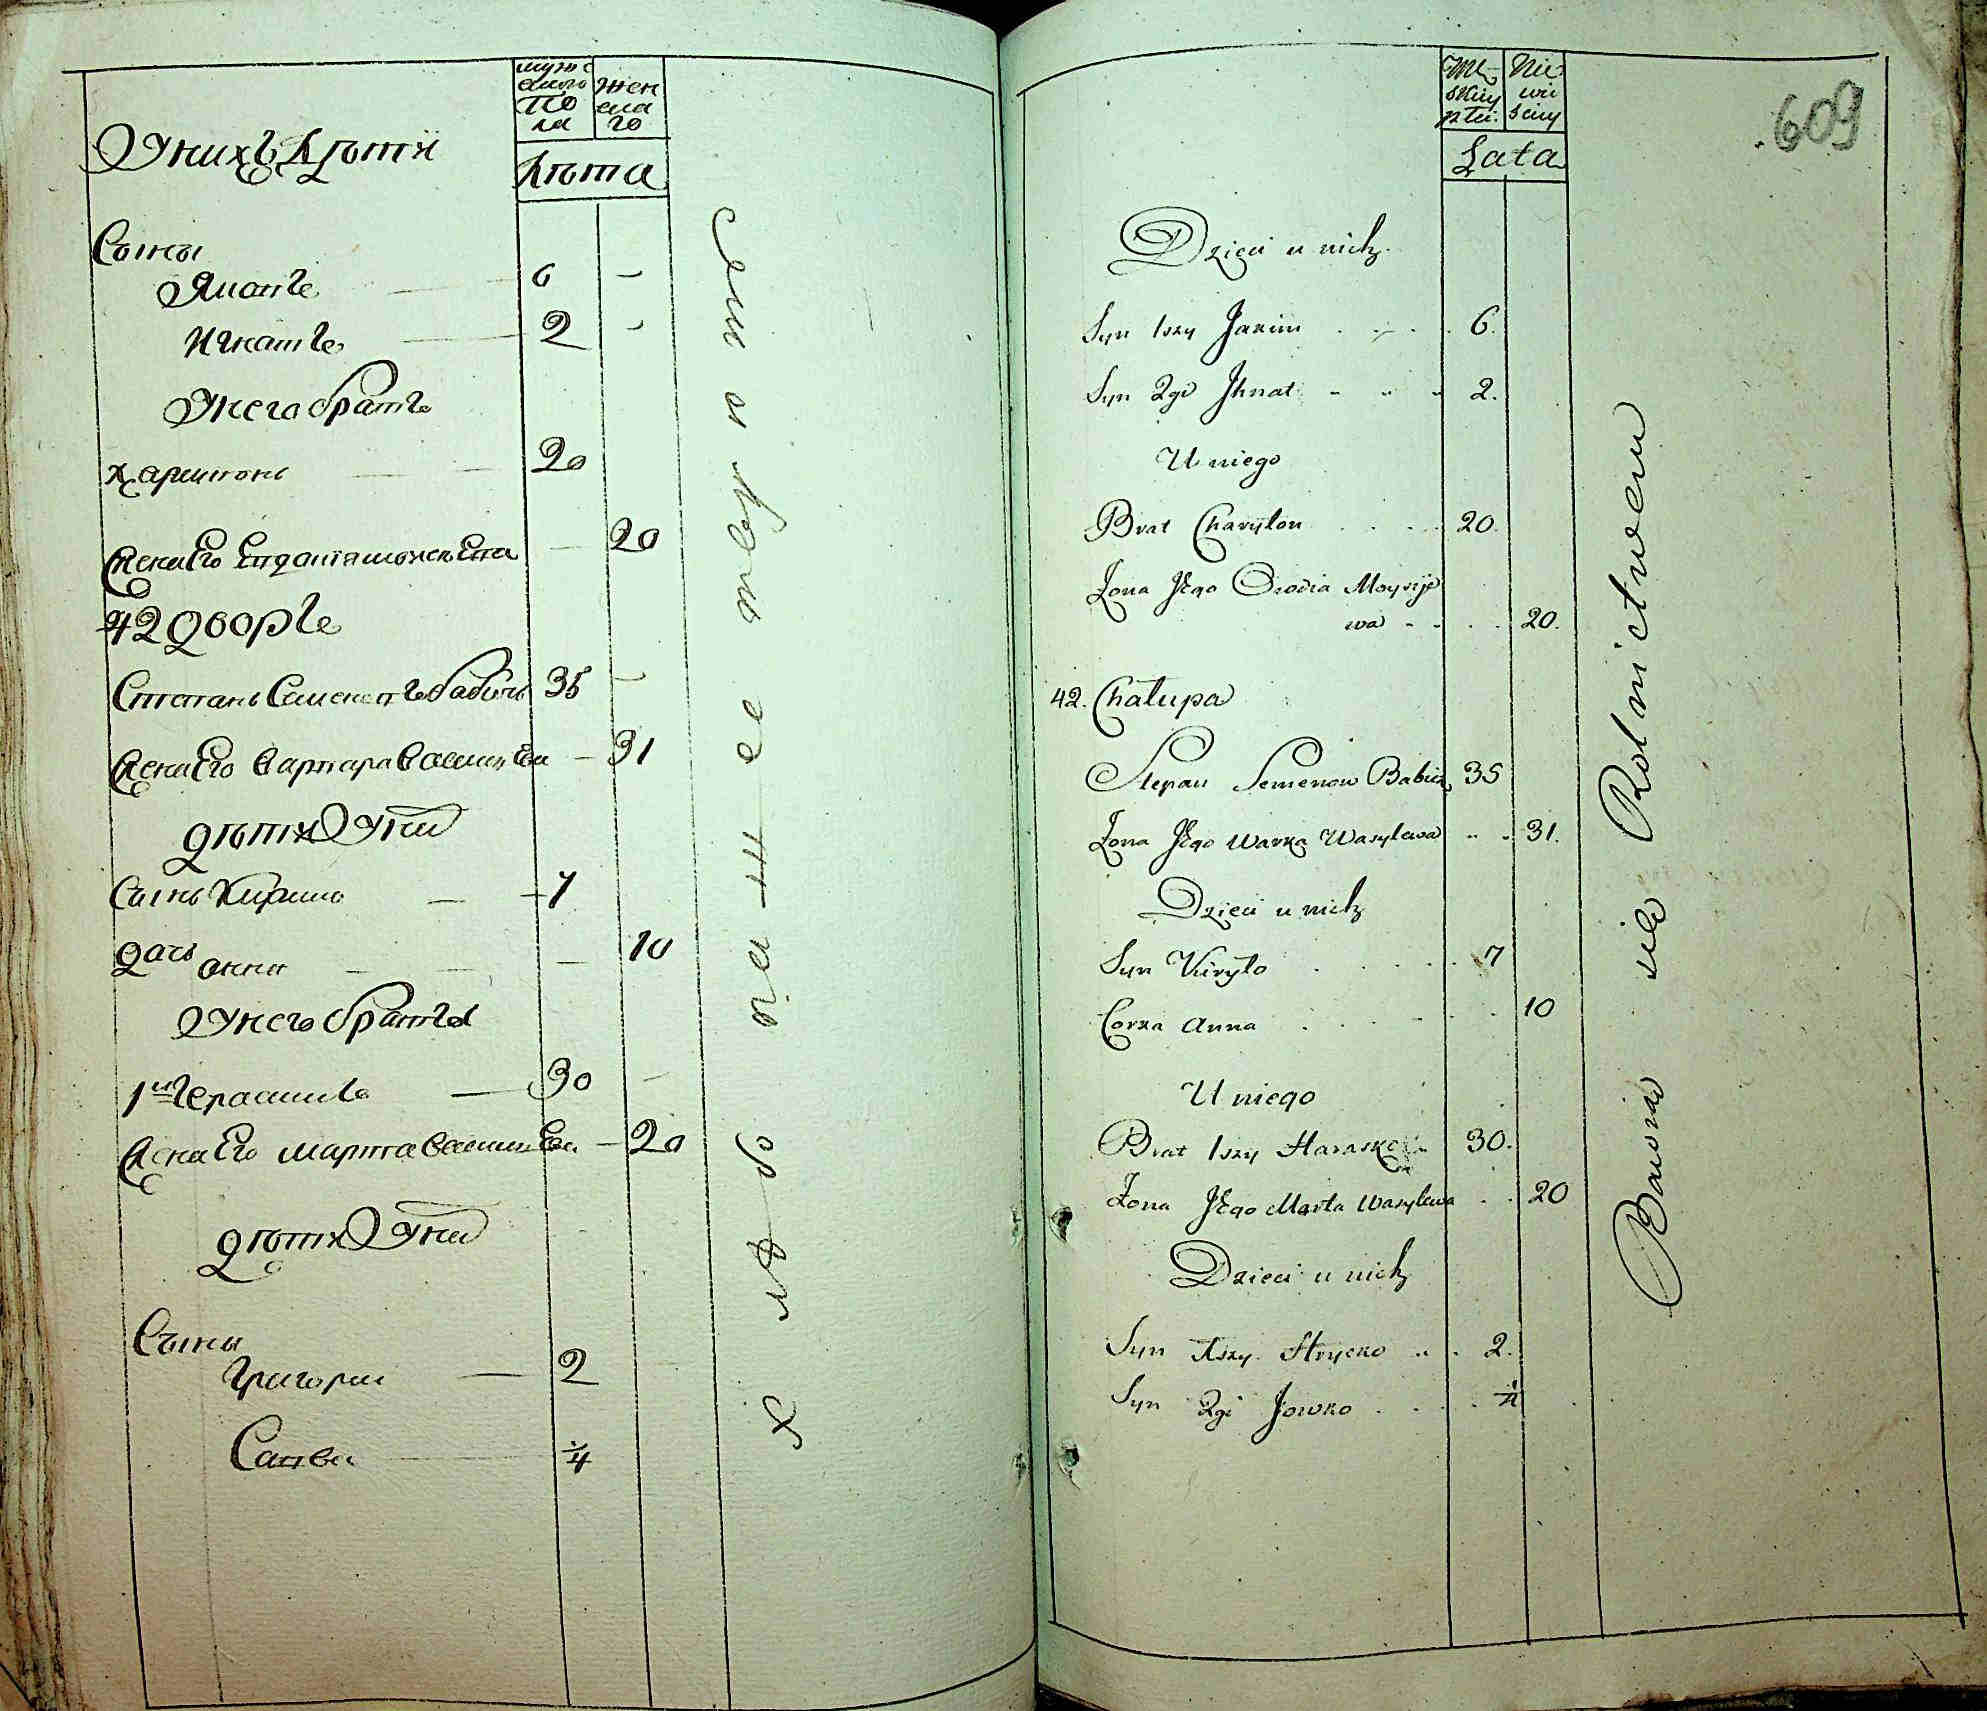 мужескаго пола
женскаго
Лѣта
У них дѣти
Сыны
Якимъ — 6 -
Игнатъ — 2 -
У него братъ
Харитонъ — 20
Жена Его — 20
42 дворъ
Степанъ Семеновъ бабичъ 35 -
Жена Его варвара василіева — 31
дѣти У них
Сынъ Кирило — 7
дочь анна — 10
У него братья
1й герасимъ — 30 -
Жена Его марта василіева — 20
дѣти У них
Сыны
Григорий — 2
Савва — 1/4
Хлѣбопашествомъ
609
Męskiey płci.
Niewieściey
Lata
Dzieci u nich.
Syn 1szy Jakim . . . 6.
Syn 2gi Jhnat - - - 2.
U niego
Brat Charyton . . . . 20.
Żona Jego Owdia Moysije
wa - - . . 20.
42. Chałupa
Stepan Semenow Babicz 35
Żona Jego Warka Wasylewa . . 31.
Dzieci u nich
Syn Kiryło . . . . . 7
Corka Anna . . . - . . 10
U niego
Brat 1szy Harasko 30.
Żona Jego Marta Wasylewa . . 20
Dzieci u nich
Syn 1szy Hrycko . . . 2.
Syn 2gi Jowko . . . . 1/4
Bawią się Rolnictwem